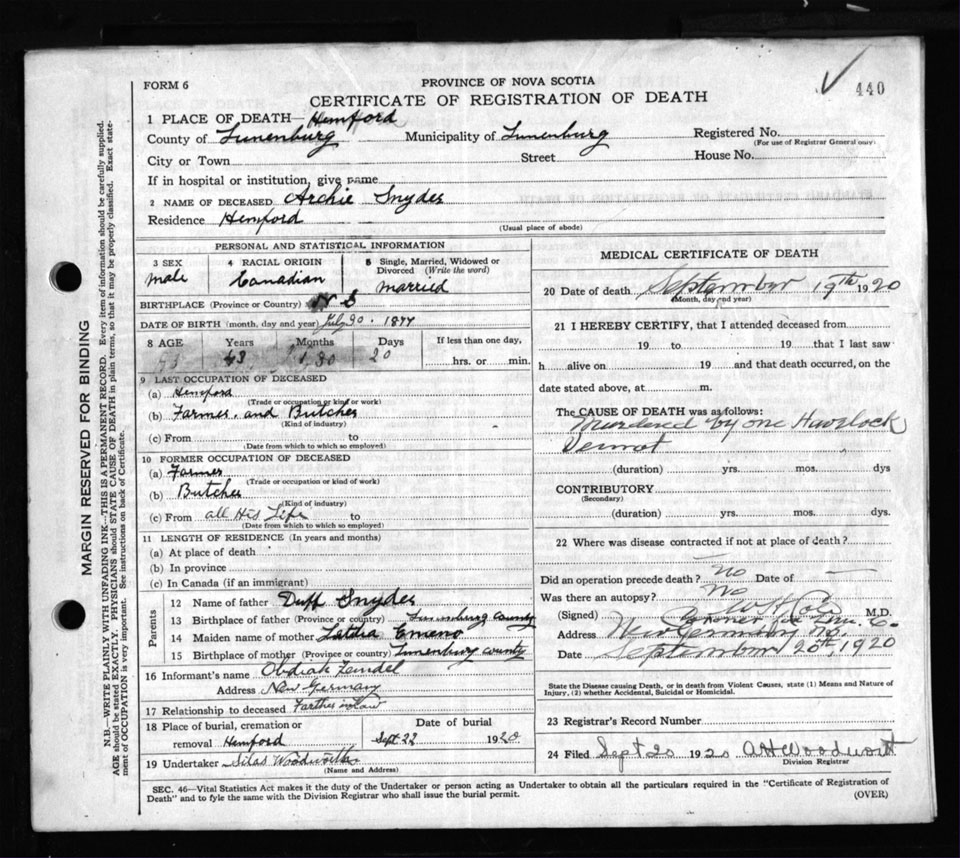 440
FORM 6
PROVINCE OF NOVA SCOTIA
CERTIFICATE OF REGISTRATION OF DEATH
1 PLACE OF DEATH— Hemford
County of Lunenburg Municipality of Lunenburg Registered No.
(For use of Registrar General only)
City or Town Street House No.
If in hospital or institution, give name
2 NAME OF DECEASED Archie Snyder
Residence Hemford
(Usual place of abode)
PERSONAL AND STATISTICAL INFORMATION
3 SEX 4 RACIAL ORIGIN 5 Single, Married, Widowed or Divorced (Write the word)
male Canadian married
BIRTHPLACE (Province or Country) N S
DATE OF BIRTH (month, day and year) July 30. 1877
8 AGE Years Months Days If less than one day,
43 1 20 hrs. or min.
9 LAST OCCUPATION OF DECEASED
(a) Hemford
(Trade or occupation or kind of work)
(b) Farmer and Butcher
(Kind of industry)
(c) From to
(Date from which to which so employed)
10 FORMER OCCUPATION OF DECEASED
(a) Farmer
(Trade or occupation or kind of work)
(b) Butcher
(Kind of industry)
(c) From all His Life to
(Date from which to which so employed)
11 LENGTH OF RESIDENCE (In years and months)
(a) At place of death
(b) In province
(c) In Canada (if an immigrant)
Parents
12 Name of father Duff Snyder
13 Birthplace of father (Province or country) Lunenburg county
14 Maiden name of mother
15 Birthplace of mother (Province or country) Lunenburg county
16 Informant's name Obdiah
Address New Germany
17 Relationship to deceased Farther in Law
18 Place of burial, cremation or removal Hemford
Date of burial
Sept 22 1920
19 Undertaker Silas Woodworth
(Name and Address)
MEDICAL CERTIFICATE OF DEATH
20 Date of death September 19th 1920
(Month, day and year)
21 I HEREBY CERTIFY, that I attended deceased from
19 to 19 that I last saw
h alive on 19 and that death occurred, on the
date stated above, at m.
The CAUSE OF DEATH was as follows:
Murdered by one Havelock
Vernot
(duration) yrs. mos. dys
CONTRIBUTORY
(Secondary)
(duration) yrs. mos. dys.
22 Where was disease contracted if not at place of death?
Did an operation precede death? No Date of —
Was there an autopsy? No
(Signed) W H Cole M.D.
Coroner
Address New Germany NS.
Date September 20th, 1920
State the Disease causing Death, or in death from Violent Causes, state (1) Means and Nature of
Injury, (2) whether Accidental, Suicidal or Homicidal.
23 Registrar's Record Number
24 Filed Sept 20 1920 A H Woodworth
Division Registrar
SEC. 46—Vital Statistics Act makes it the duty of the Undertaker or person acting as Undertaker to obtain all the particulars required in the "Certificate of Registration of
Death" and to fyle the same with the Division Registrar who shall issue the burial permit.
(OVER)
MARGIN RESERVED FOR BINDING
N.B.—WRITE PLAINLY WITH UNFADING INK—THIS IS A PERMANENT RECORD. Every item of information should be carefully supplied.
AGE should be stated EXACTLY. PHYSICIANS should STATE CAUSE OF DEATH in plain terms, so that it may be properly classified. Exact statement of OCCUPATION is very important. See instructions on back of Certificate.